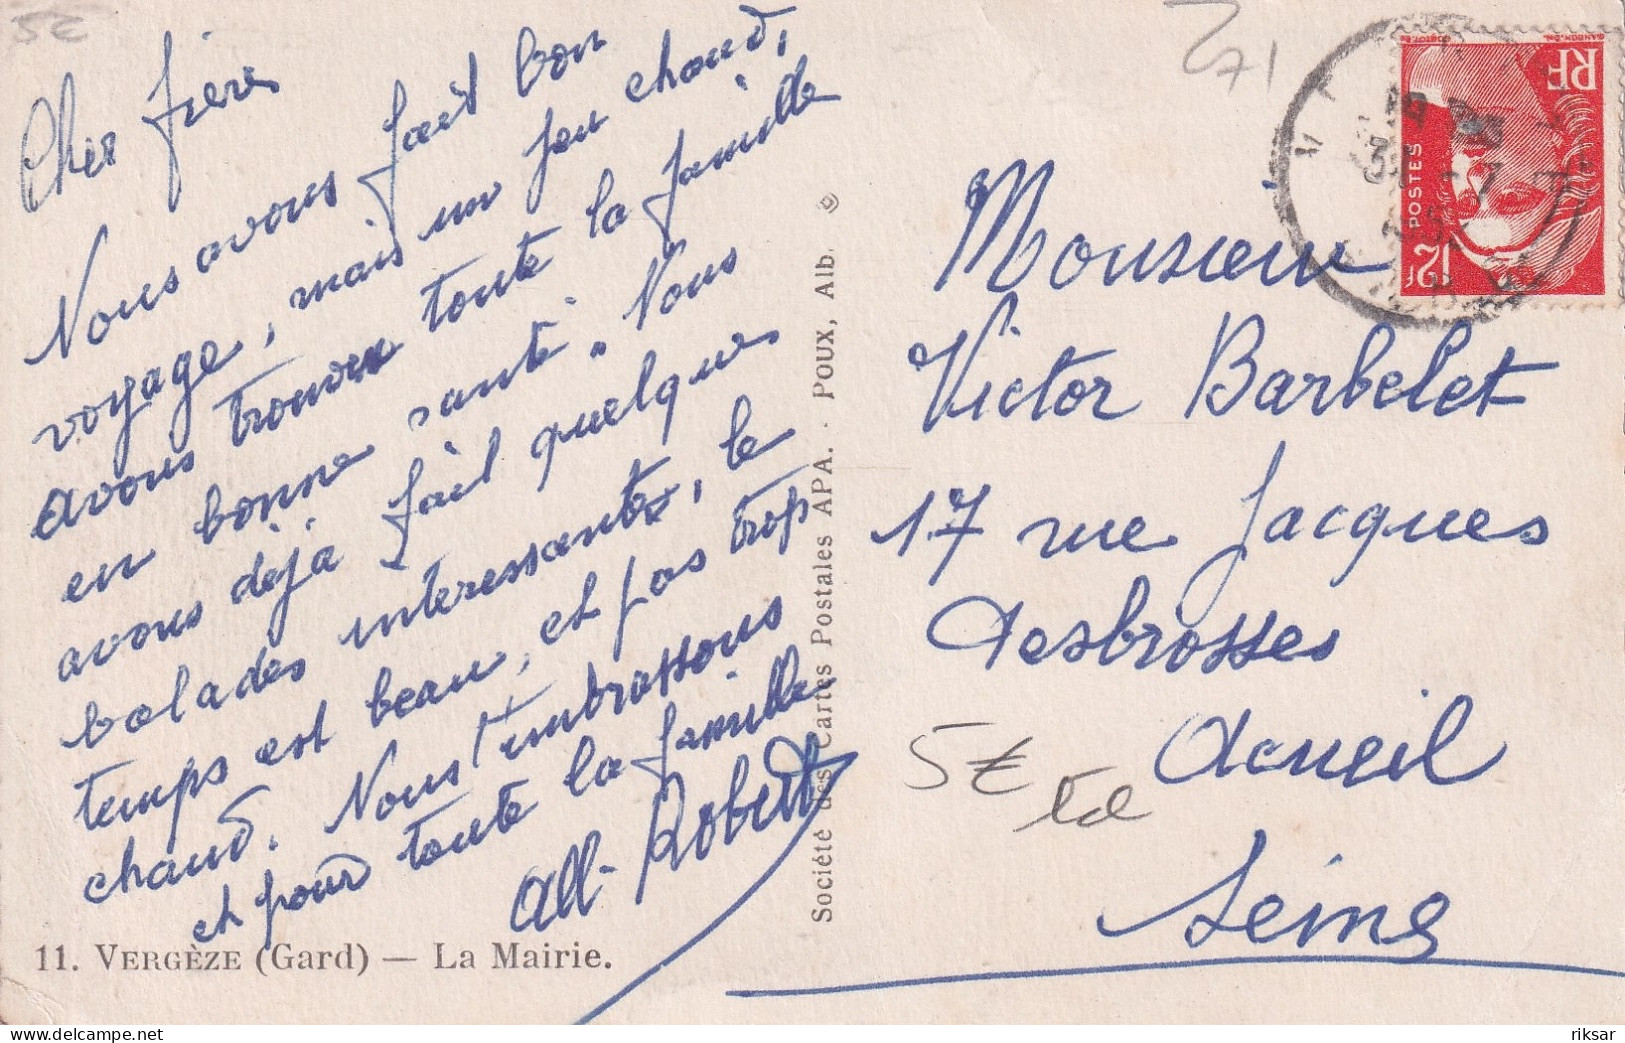 5€
Cher frère
Nous avons fait bon
voyage, mais un peu chaud,
avons trouvé toute la famille
en bonne santé. Nous
avons déjà fait quelques
balades interessantes, le
temps est beau, et pas trop
chaud. Nous t'embrassons
et pour toute la famille
Robert
11. VERGÈZE (Gard) — La Mairie.
Société des Cartes Postales APA. - POUX, Alb.
RF
POSTES
12F
Monsieur
Victor Barbelet
17 rue Jacques
desbrosses
Acrueil
Seine
5€
riksar